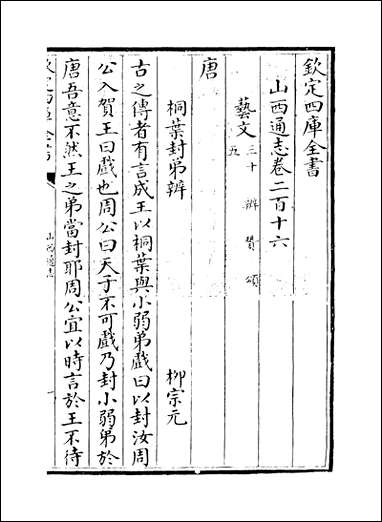 欽定四庫全書
山西通志卷二百十六
藝文三十五 辨贊頌
唐
桐葉封弟辨　柳宗元
古之傳者有言成王以桐葉與小弱弟戲曰以封汝周
公入賀王曰戲也周公曰天子不可戲乃封小弱弟於
唐吾意不然王之弟當封耶周公宜以時言於王不待
山西通志